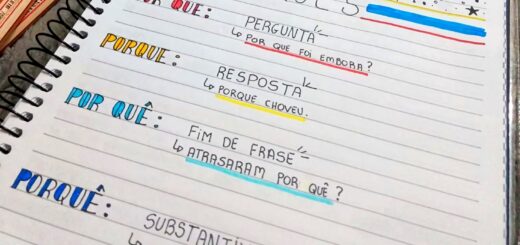 POR QUE: PERGUNTA
↳ POR QUE FOI EMBORA?
PORQUE: RESPOSTA
↳ PORQUE CHOVEU.
POR QUÊ: FIM DE FRASE
↳ ATRASARAM POR QUÊ?
PORQUÊ: